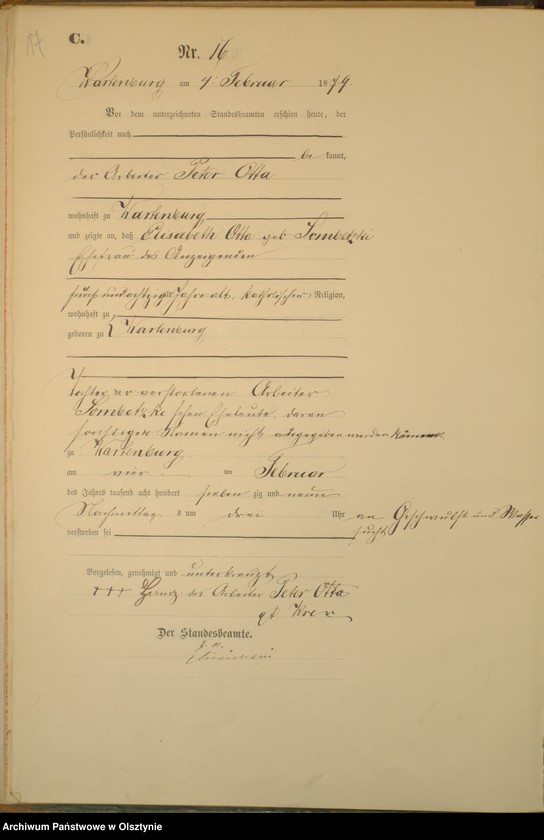 C.
Nr. 16
Wartenburg am 4. Februar 1879.
Vor dem unterzeichneten Standesbeamten erschien heute, der
Persönlichkeit nach
be kannt,
der Arbeiter Peter Otta
wohnhaft zu Wartenburg
und zeigte an, daß Elisabeth Otta geb Sombetzki
Ehefrau des Anzeigenden
fünf und achtzig Jahre alt, katholischer Religion,
wohnhaft zu
geboren zu Wartenburg
Tochter der verstorbenen Arbeiter
Sombetzki schen Eheleute, deren
Namen nicht angegeben werden können.
zu Wartenburg
am vier ten Februar
des Jahres tausend acht hundert sieben zig und neun
Nachmittags um drei Uhr an Geschwulst und Wasser
sucht
verstorben sei
Vorgelesen, genehmigt und unterkreuzt
+++ Handz des Arbeiter Peter Otta
Der Standesbeamte.
Archiwum Państwowe w Olsztynie